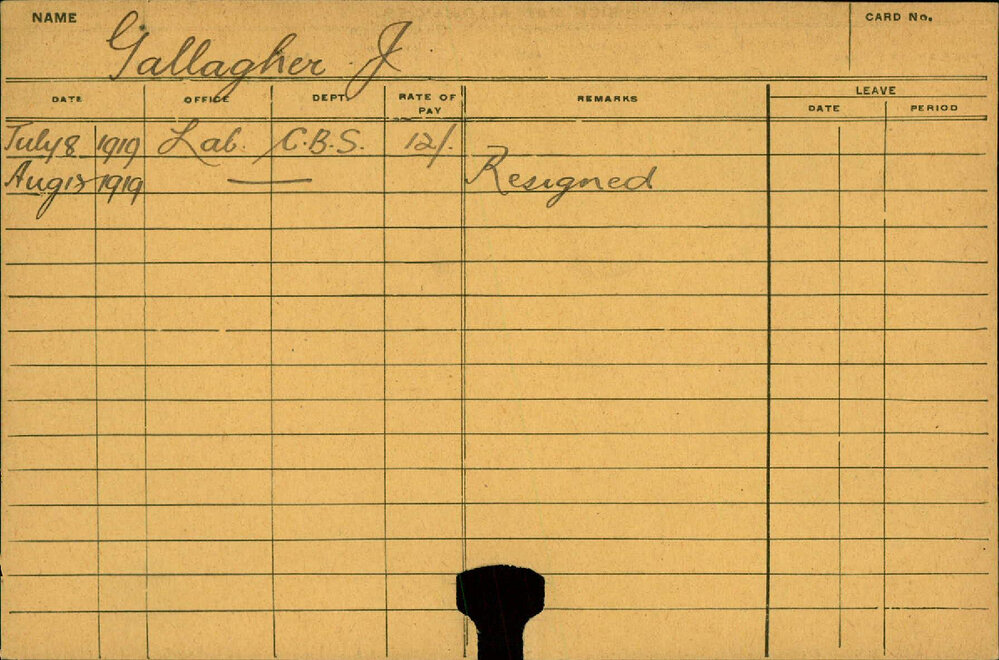 NAME Gallagher J CARD No.
DATE OFFICE DEPT. RATE OF PAY REMARKS LEAVE
DATE PERIOD
July 8 1919 Lab. C.B.S. 12/.
Aug 13 1919 — Resigned